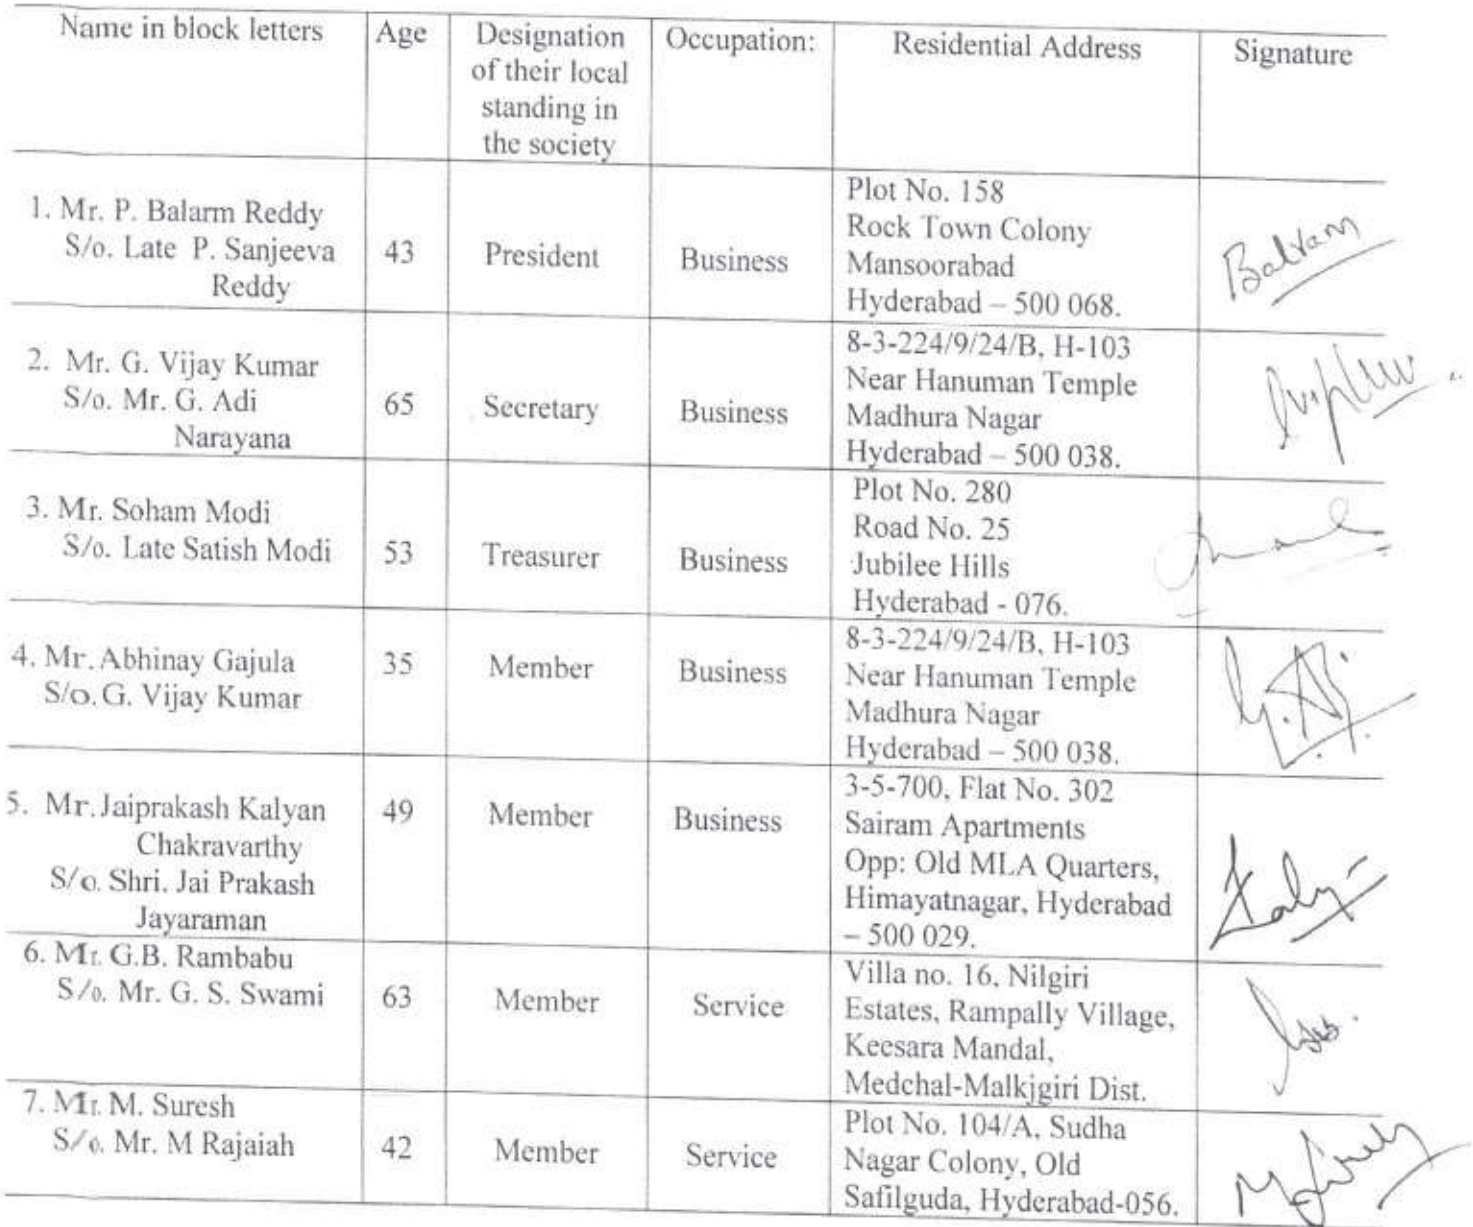 Name in block letters
Age
Designation
of their local
standing in
the society
Occupation:
Residential Address
Signature
1. Mr. P. Balarm Reddy
S/o. Late P. Sanjeeva
Reddy
43
President
Business
Plot No. 158
Rock Town Colony
Mansoorabad
Hyderabad – 500 068.
Balram
2. Mr. G. Vijay Kumar
S/o. Mr. G. Adi
Narayana
65
Secretary
Business
8-3-224/9/24/B, H-103
Near Hanuman Temple
Madhura Nagar
Hyderabad – 500 038.
3. Mr. Soham Modi
S/o. Late Satish Modi
53
Treasurer
Business
Plot No. 280
Road No. 25
Jubilee Hills
Hyderabad - 076.
4. Mr. Abhinay Gajula
S/o. G. Vijay Kumar
35
Member
Business
8-3-224/9/24/B, H-103
Near Hanuman Temple
Madhura Nagar
Hyderabad – 500 038.
5. Mr. Jaiprakash Kalyan
Chakravarthy
S/o. Shri. Jai Prakash
Jayaraman
49
Member
Business
3-5-700, Flat No. 302
Sairam Apartments
Opp: Old MLA Quarters,
Himayatnagar, Hyderabad
– 500 029.
6. Mr. G.B. Rambabu
S/o. Mr. G. S. Swami
63
Member
Service
Villa no. 16, Nilgiri
Estates, Rampally Village,
Keesara Mandal,
Medchal-Malkjgiri Dist.
7. Mr. M. Suresh
S/o. Mr. M Rajaiah
42
Member
Service
Plot No. 104/A, Sudha
Nagar Colony, Old
Safilguda, Hyderabad-056.